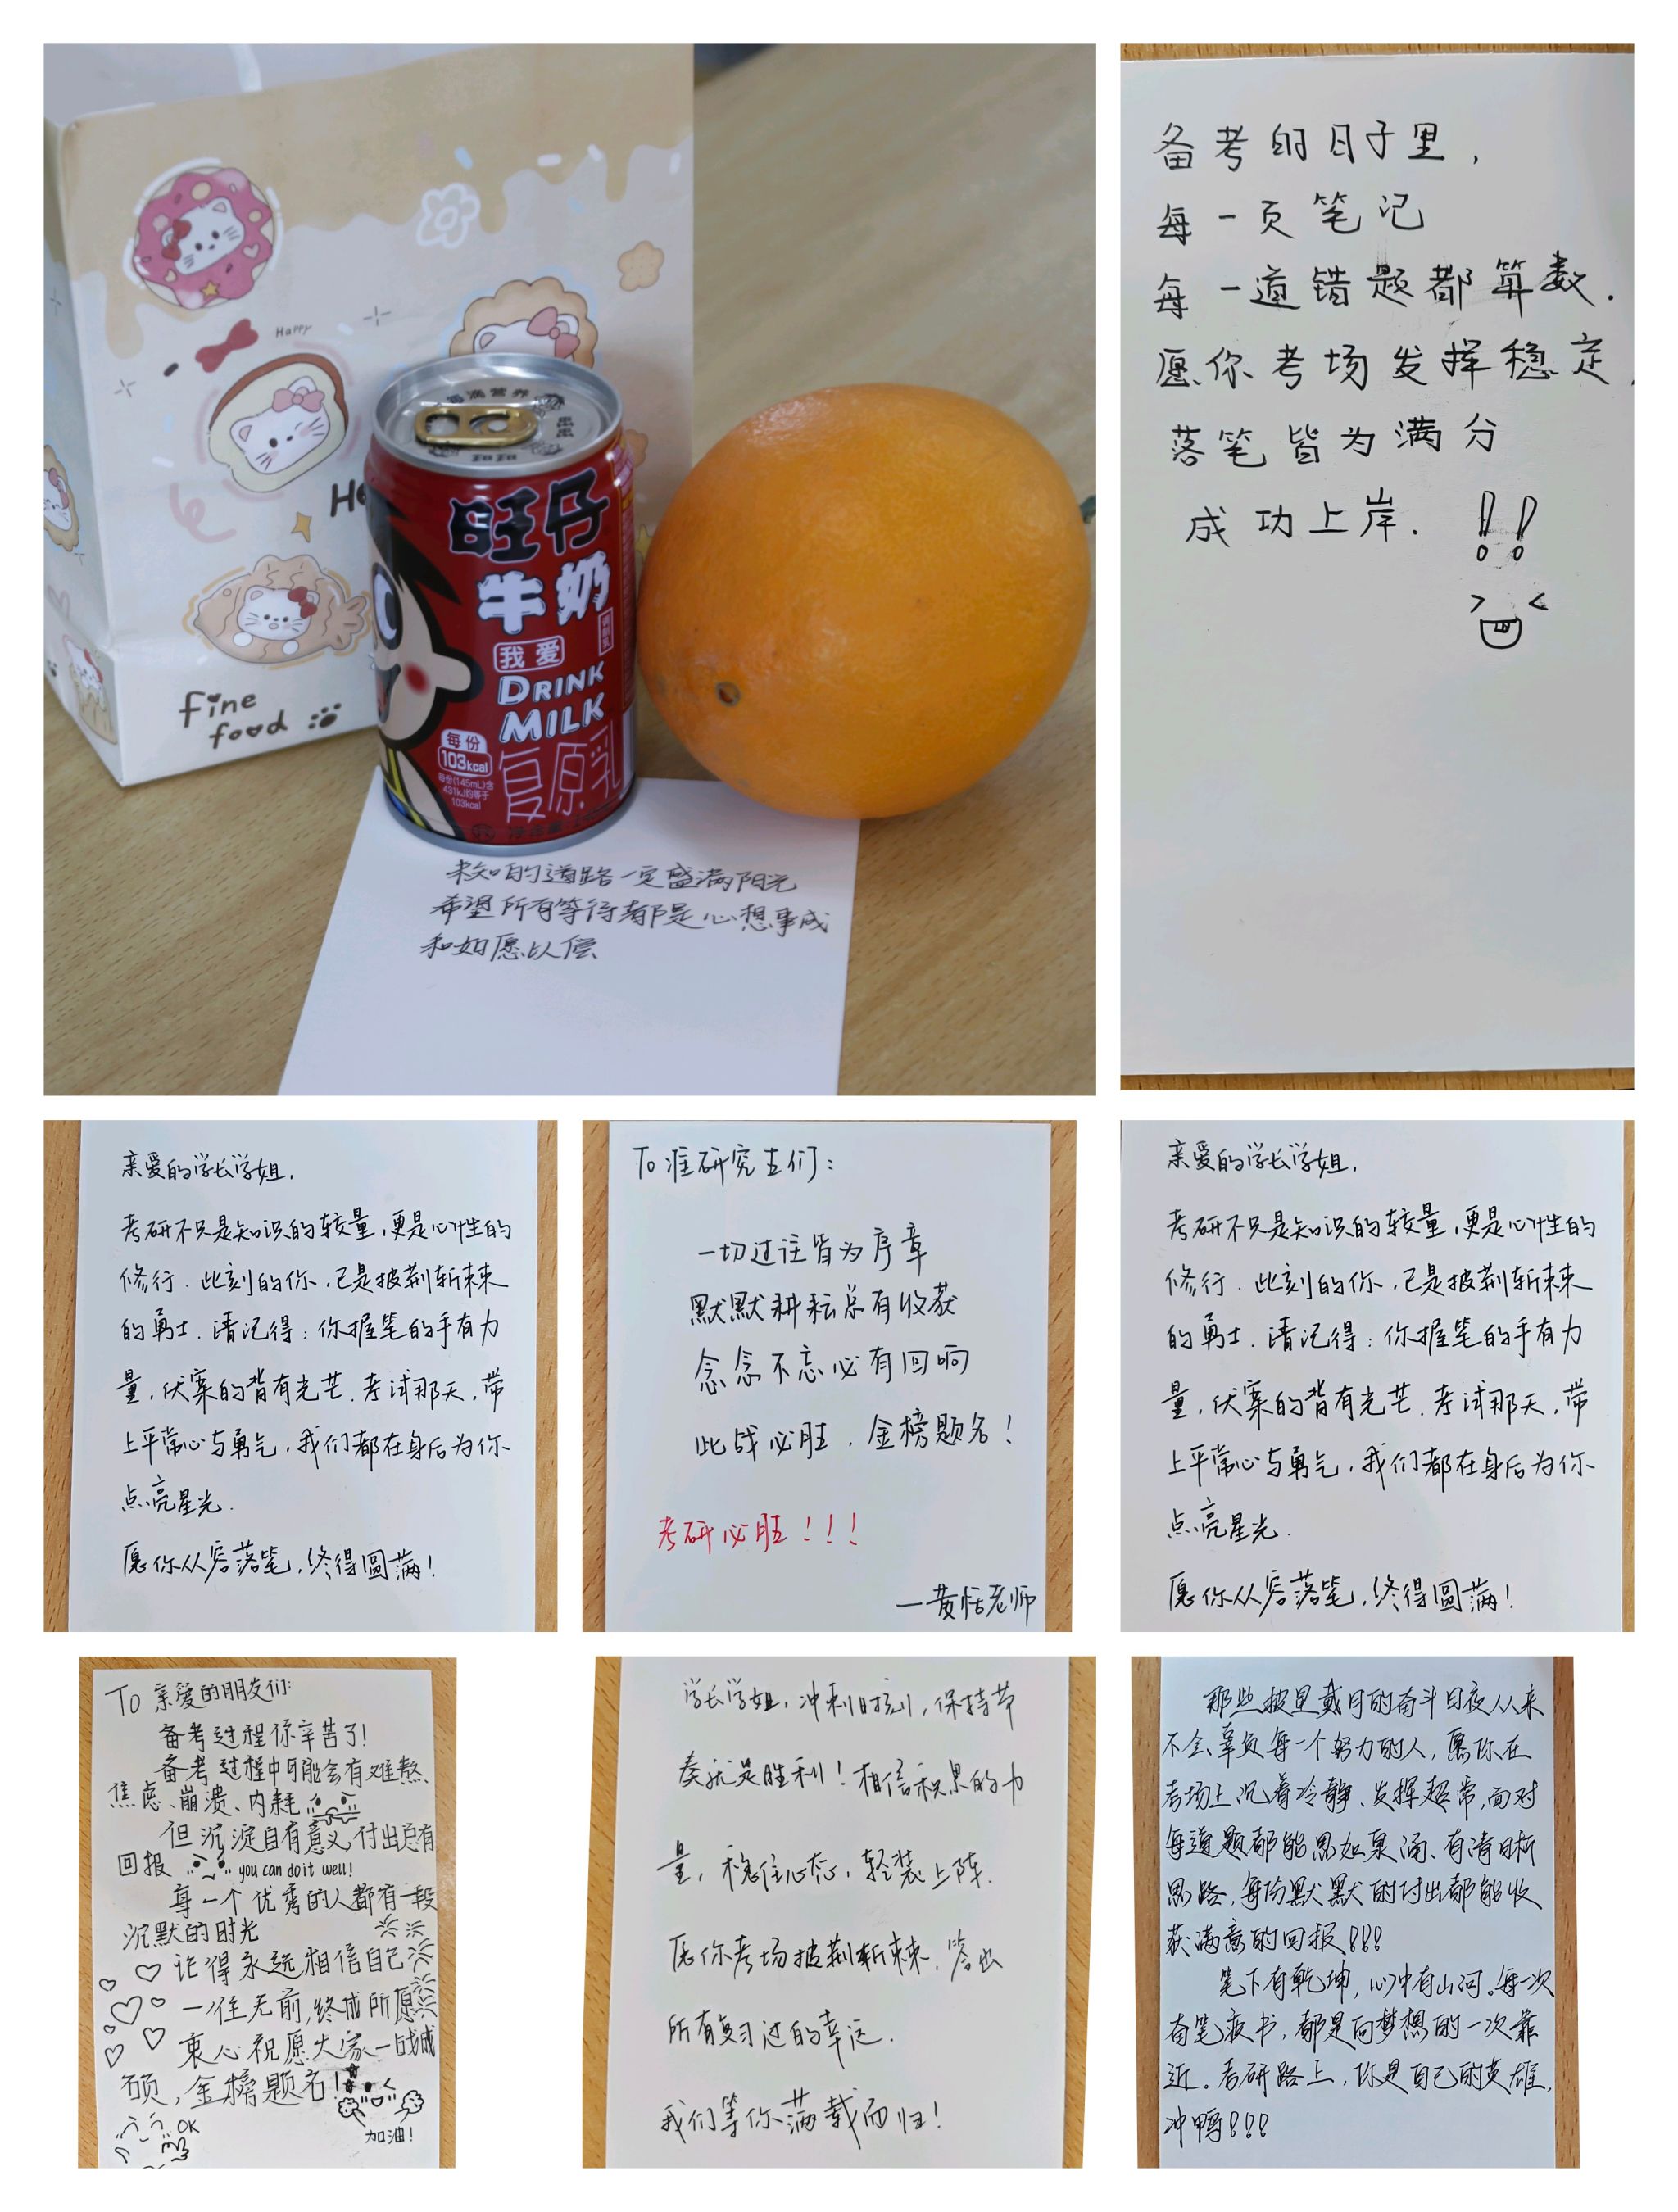 Happy
He
Fine
food
旺仔
牛奶
我爱
DRINK
MILK
每份
103kcal
每份(145mL)含
431kJ约等于
103kcal
复原乳
未知的道路一定盛满阳光
希望所有等待都是心想事成
和如愿以偿
备考的日子里,
每一页笔记
每一道错题都算数.
愿你考场发挥稳定,
落笔皆为满分
成功上岸. !!
亲爱的学长学姐,
考研不只是知识的较量,更是心性的
修行.此刻的你,已是披荆斩棘
的勇士.请记得:你握笔的手有力
量,伏案的背有光芒.考试那天,带
上平常心与勇气,我们都在身后为你
点亮星光.
愿你从容落笔,终得圆满!
To 准研究生们:
一切过往皆为序章
默默耕耘总有收获
念念不忘必有回响
此战必胜,金榜题名!
考研必胜!!!
—黄恬老师
亲爱的学长学姐,
考研不只是知识的较量,更是心性的
修行.此刻的你,已是披荆斩棘
的勇士.请记得:你握笔的手有力
量,伏案的背有光芒.考试那天,带
上平常心与勇气,我们都在身后为你
点亮星光.
愿你从容落笔,终得圆满!
To 亲爱的朋友们:
备考过程你辛苦了!
备考过程中可能会有难熬、
焦虑、崩溃、内耗
但沉淀自有意义,付出总有
回报 you can do it well!
每一个优秀的人都有一段
沉默的时光
记得永远相信自己
一往无前,终成所愿
衷心祝愿大家一战成
硕,金榜题名!
OK
加油!
学长学姐,冲刺时刻,保持节
奏就是胜利!相信积累的力
量,稳住心态,轻装上阵.
愿你考场披荆斩棘,答出
所有复习过的幸运.
我们等你满载而归!
那些披星戴月的奋斗日夜从来
不会辜负每一个努力的人,愿你在
考场上沉着冷静、发挥超常,面对
每道题都能思如泉涌、有清晰
思路,每份默默的付出都能收
获满意的回报!!!
笔下有乾坤,心中有山河。每一次
奋笔疾书,都是向梦想的一次靠
近。考研路上,你是自己的英雄,
冲鸭!!!